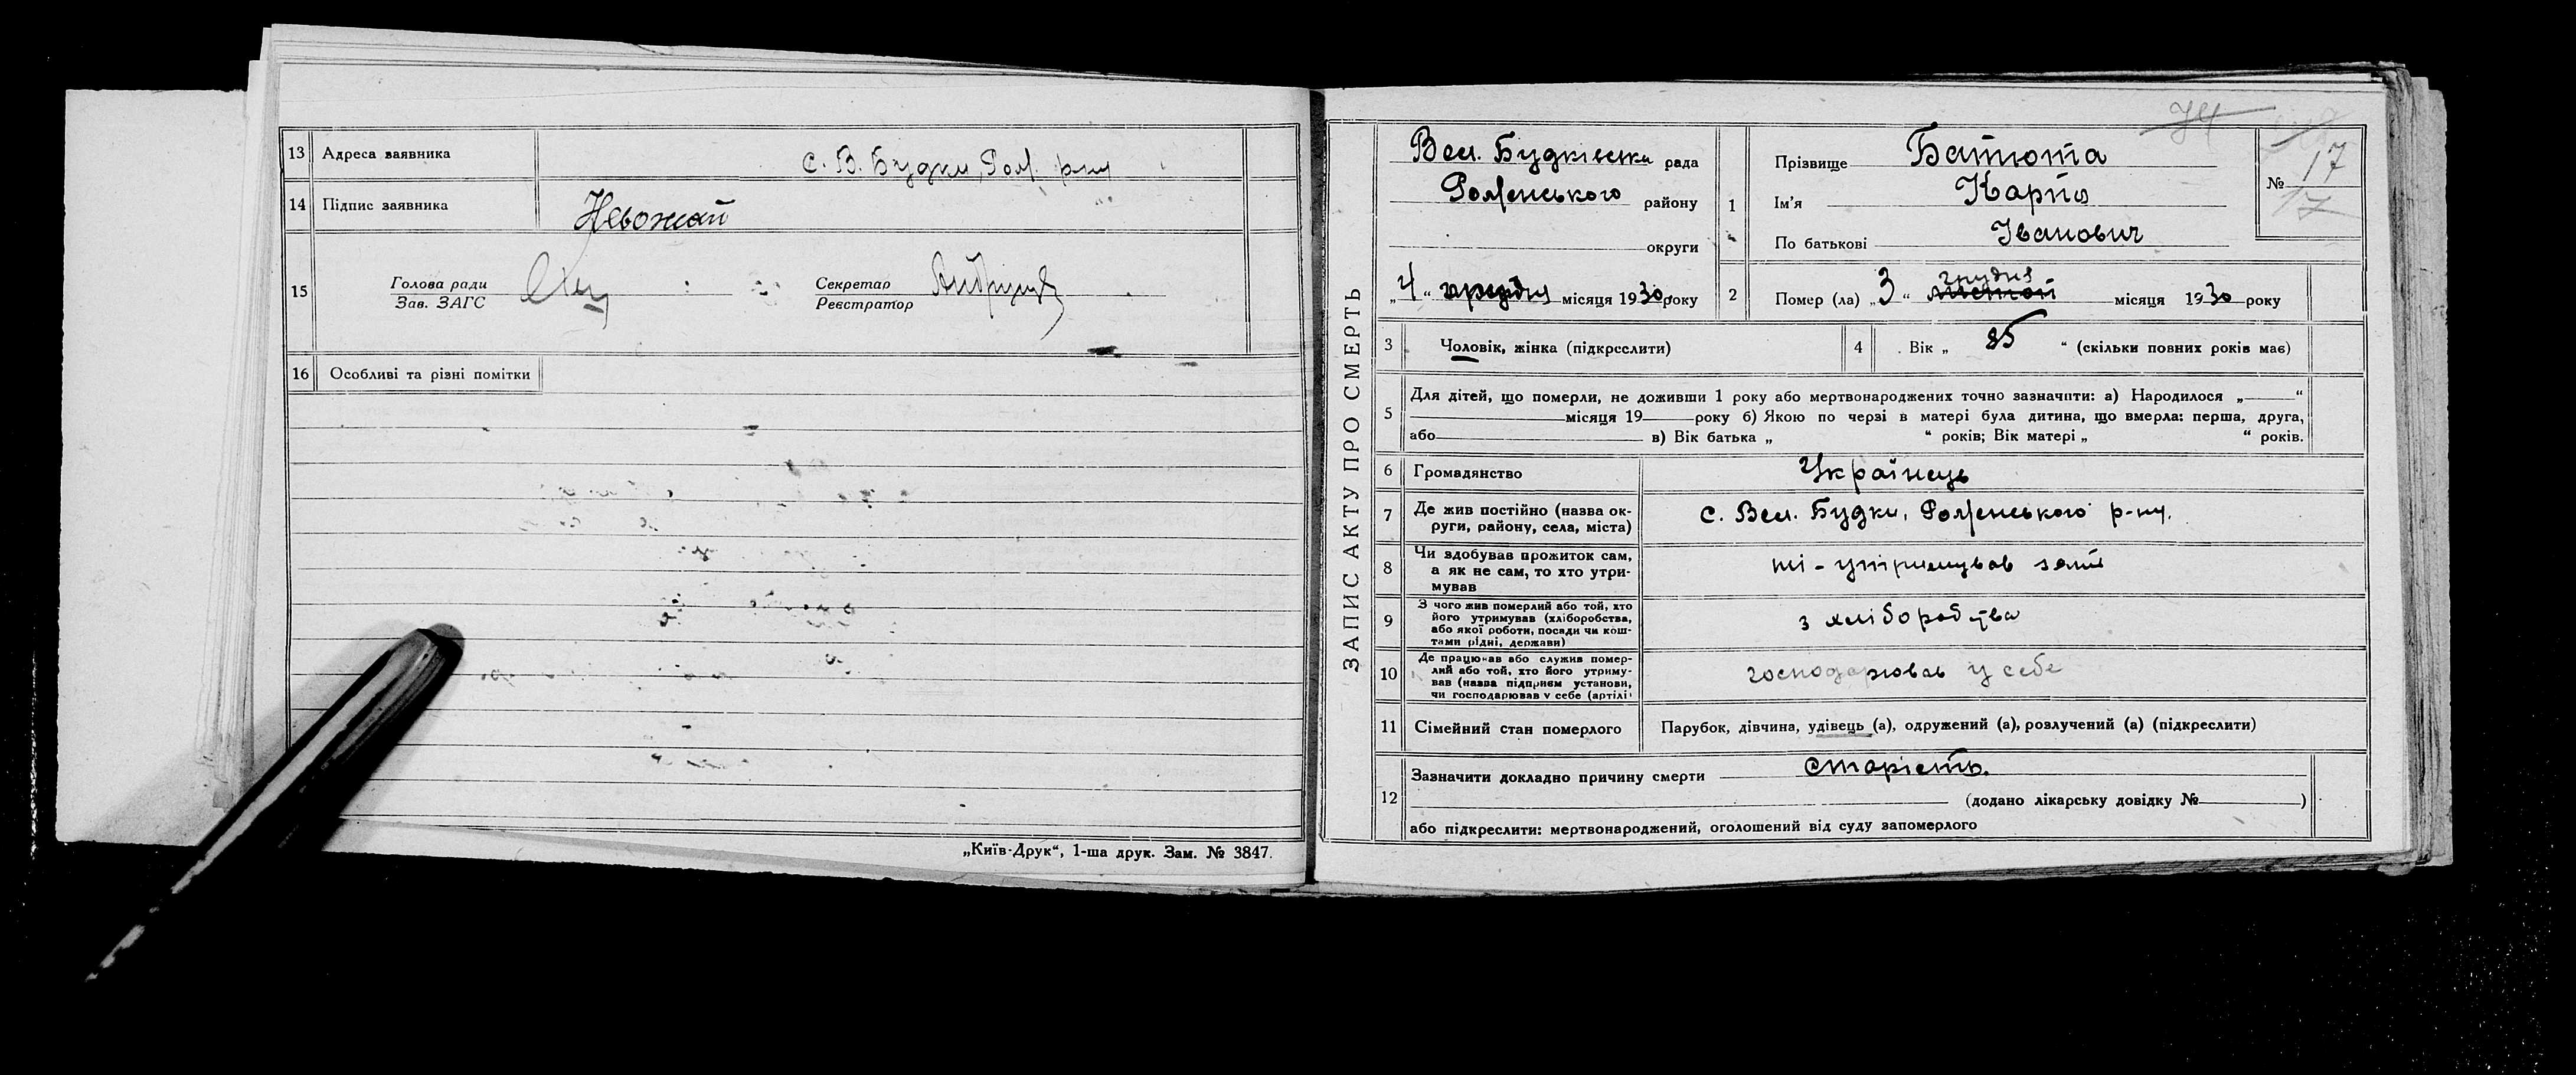 13 Адреса заявника с. В. Будки, Ром. р-ну
14 Підпис заявника Невожай
15 Голова ради
Зав. ЗАГС
Секретар
Реєстратор
16 Особливі та різні помітки
„Київ-Друк“, 1-ша друк. Зам. № 3847.
ЗАПИС АКТУ ПРО СМЕРТЬ
74
Вел. Будківська рада
Роменського району
округи
„4“ грудня місяця 1930 року
1 Прізвище Батюта
Ім'я Карпо
По батькові Іванович
№ 17
17
2 Помер (ла) „3“ грудня місяця 1930 року
3 Чоловік, жінка (підкреслити)
4 Вік „85“ (скільки повних років має)
5 Для дітей, що померли, не доживши 1 року або мертвонароджених точно зазначити: а) Народилося „ “
місяця 19 року б) Якою по черзі в матері була дитина, що вмерла: перша, друга,
або в) Вік батька „ “ років; Вік матері „ “ років.
6 Громадянство Українець
7 Де жив постійно (назва округи, району, села, міста) с. Вел. Будки, Роменського р-ну.
8 Чи здобував прожиток сам, а як не сам, то хто утримував ні - утримував зять
9 З чого жив померлий або той, хто його утримував (хліборобства, або якої роботи, посади чи коштами рідні, держави) з хліборобства
10 Де працював або служив померлий або той, хто його утримував (назва підприєм установи, чи господарював у себе (артілі) господарював у себе
11 Сімейний стан померлого Парубок, дівчина, удівець (а), одружений (а), розлучений (а) (підкреслити)
12 Зазначити докладно причину смерти старість.
(додано лікарську довідку № )
або підкреслити: мертвонароджений, оголошений від суду запомерлого